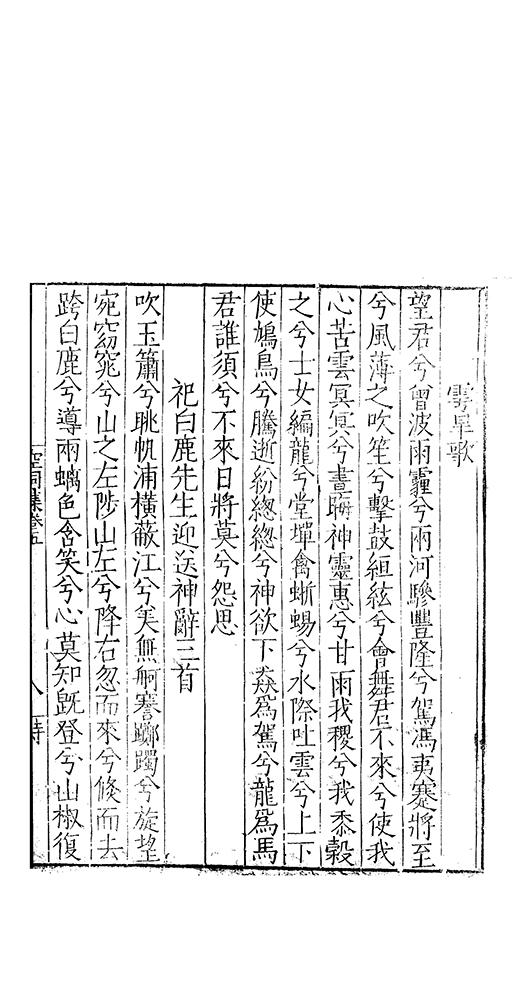 雩旱歌
望君兮曾波雨霾兮兩河驂豐隆兮駕馮夷蹇將至
兮風薄之吹笙兮擊鼓絙絃兮會舞君不來兮使我
心苦雲冥冥兮晝晦神靈惠兮甘雨我稷兮我黍穀
之兮士女編龍兮堂墠禽蜥蜴兮水際吐雲兮上下
使鳩鳥兮騰逝紛總總兮神欲下猋爲駕兮龍爲馬
君誰須兮不來日將莫兮怨思
祀白鹿先生迎送神辭三首
吹玉簫兮眺帆浦橫蔽江兮美無舸謇躑躅兮旋望
宛窈窕兮山之左陟山左兮降右忽而來兮倏而去
跨白鹿兮導兩螭色含笑兮心莫知旣登兮山椒復
空同集卷五
八
詩